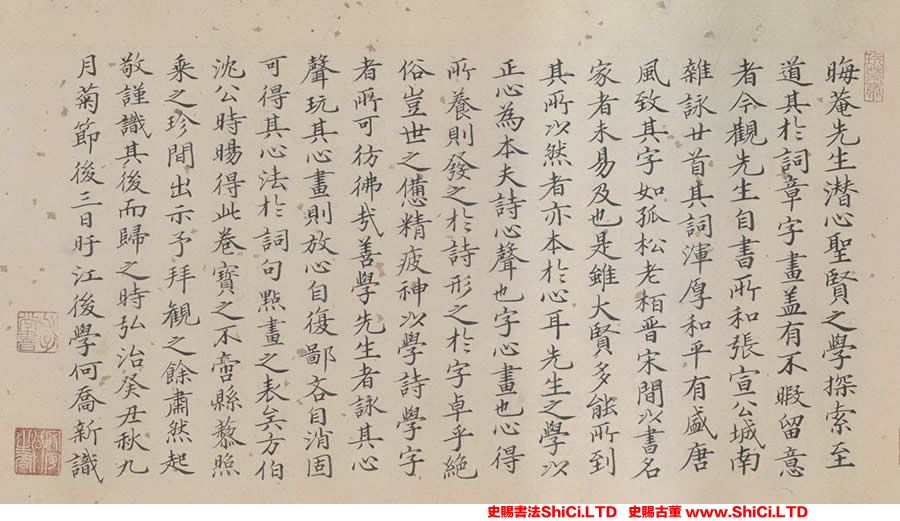 晦菴先生潛心聖賢之學探索至
道其於詞章字畫盖有不暇留意
者今觀先生自書所和張宣公城南
雜詠廿首其詞渾厚和平有盛唐
風致其字如孤松老栢晋宋間以書名
家者未易及也是雖大賢多能所到
其所以然者亦本於心耳先生之學以
正心為本夫詩心聲也字心畫也心得
所養則發之於詩形之於字卓乎絶
俗豈世之憊精疲神以學詩學字
者所可彷彿㢤善學先生者詠其心
聲玩其心畫則放心自復鄙吝自消固
可得其心法於詞句點畫之表矣方伯
沈公時暘得此卷寶之不啻縣藜照
乗之珍間出示予拜觀之餘肅然起
敬謹識其後而歸之時弘治癸丑秋九
月菊節後三日盱江後學何喬新識
史賜書法ShiCi.LTD 史賜古董 www.ShiCi.LTD